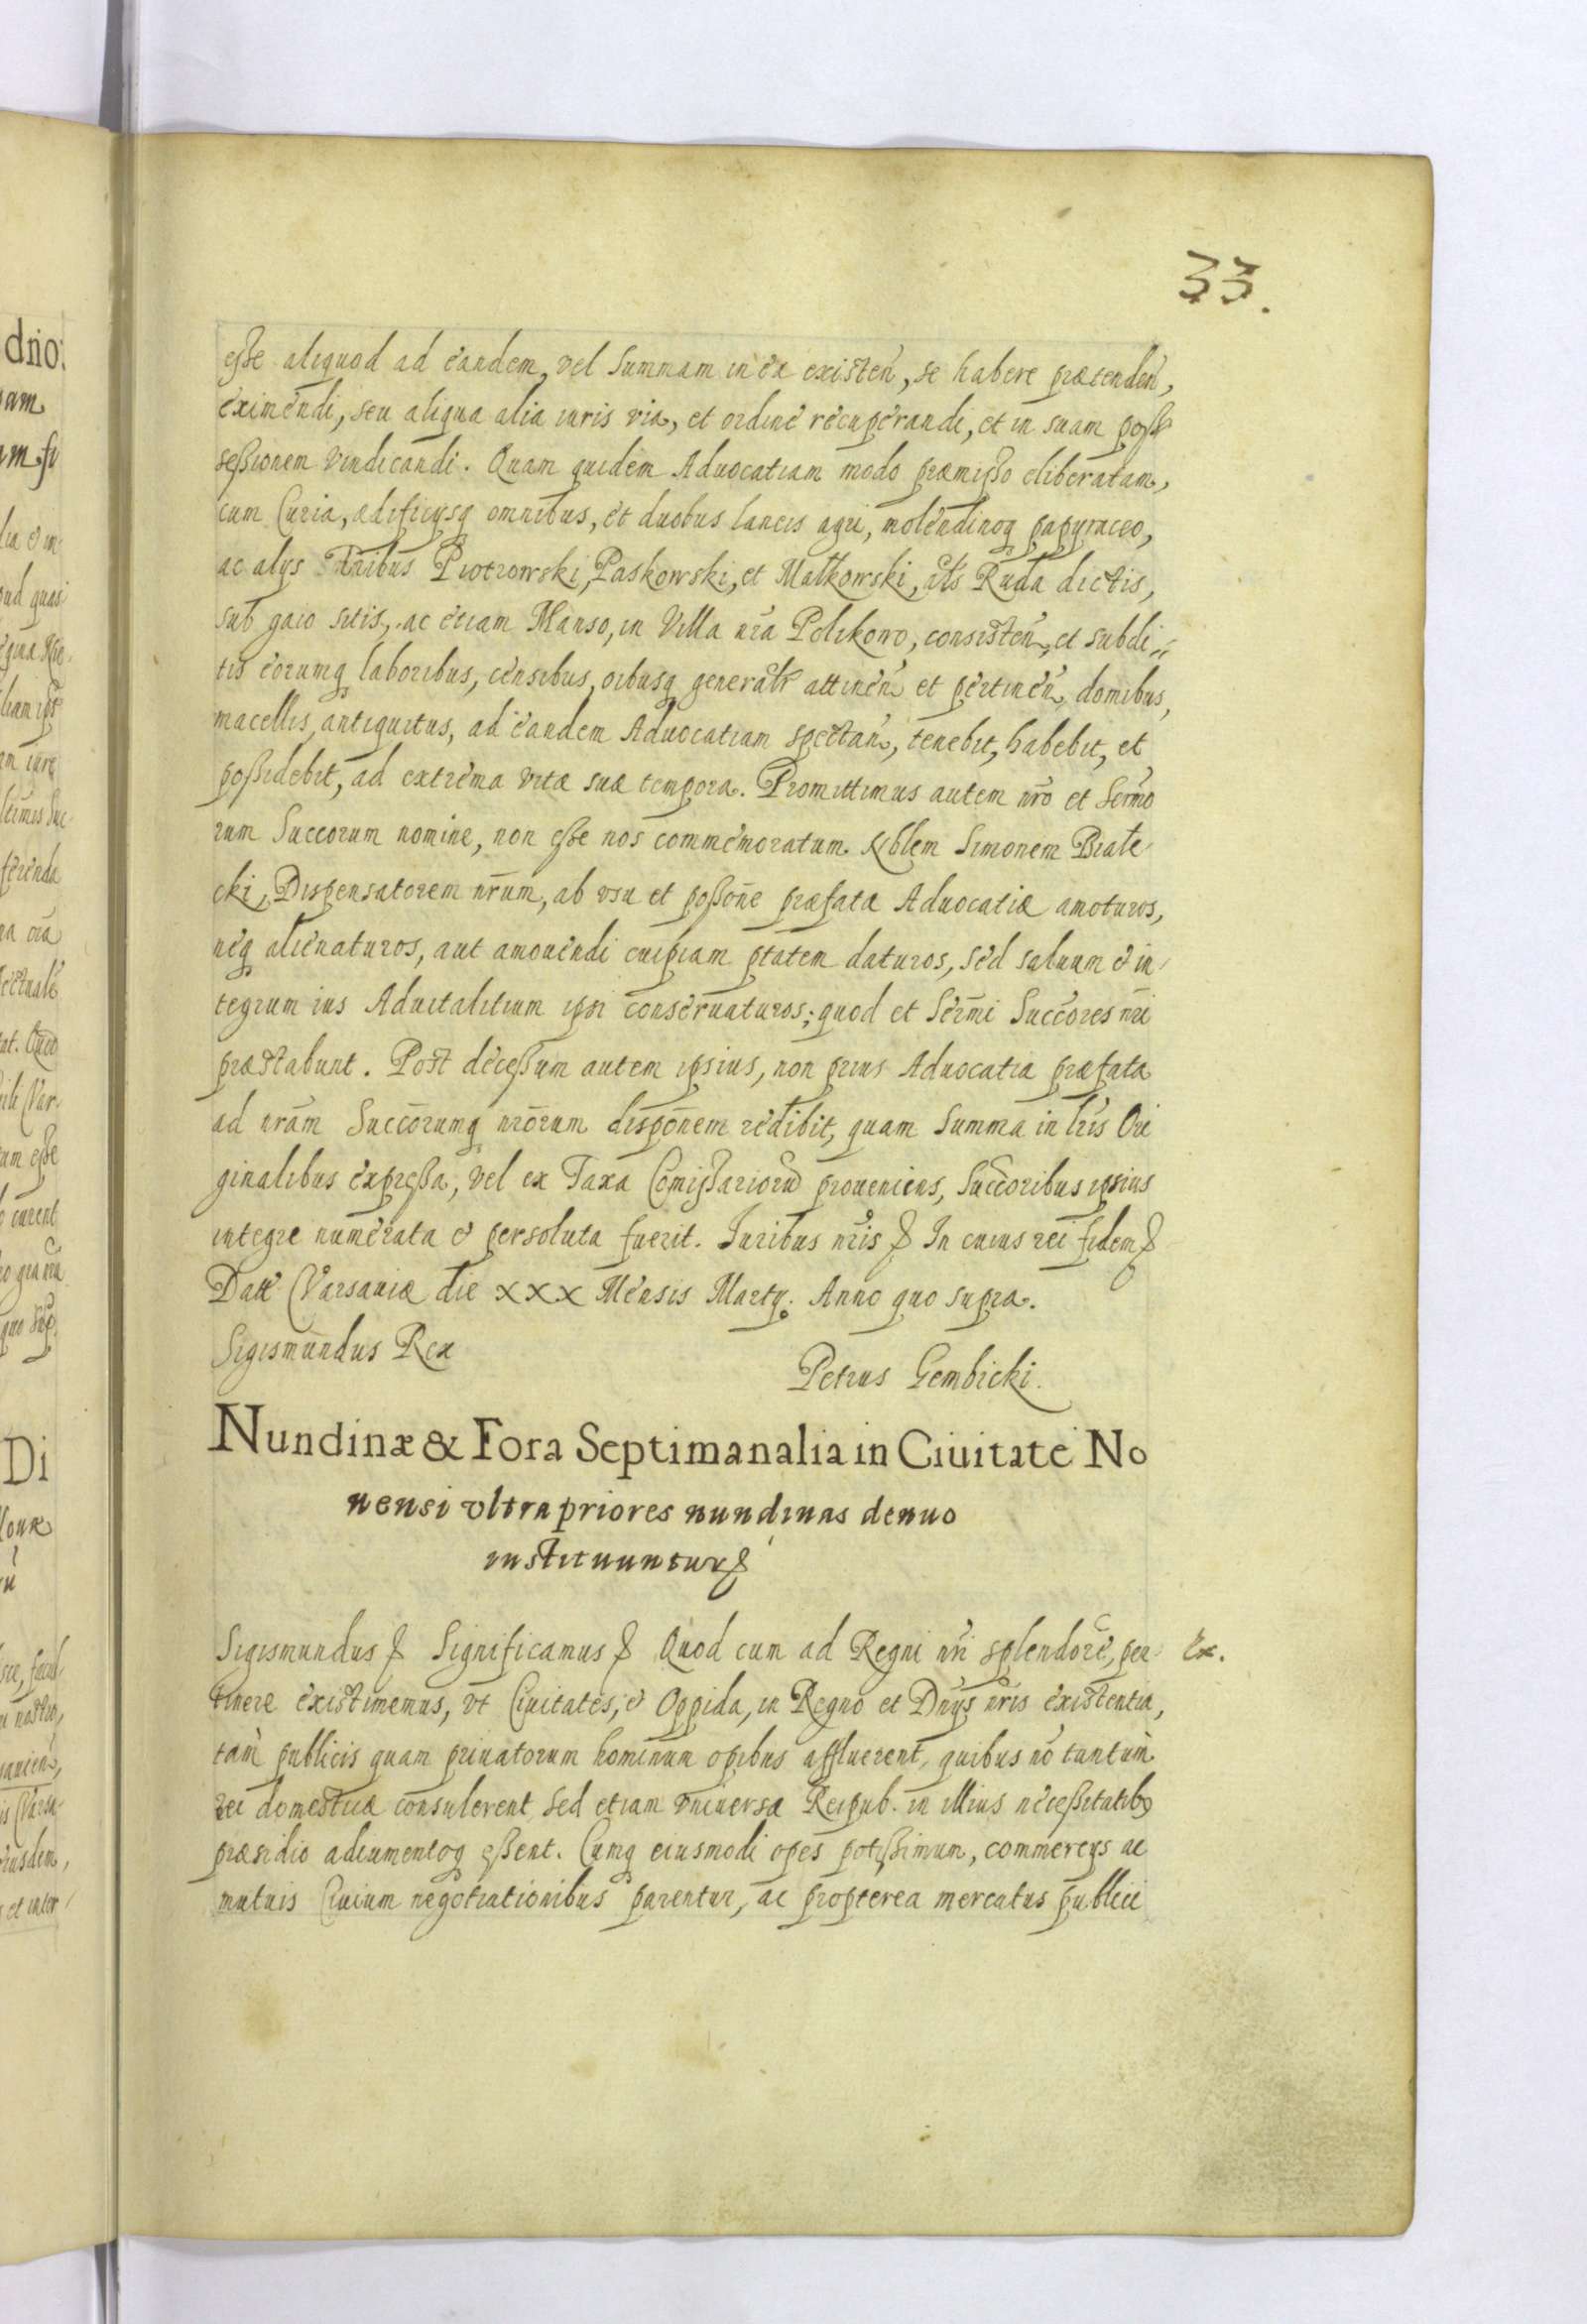 33.
esse aliquod ad eandem, vel Summam in ea existen, se habere prætenden,
eximendi, seu aliqua alia iuris via, et ordine recuperandi, et in suam poss
sessionem vindicandi. Quam quidem Aduocatiam modo præmisso eliberatam,
cum Curia, ædificijsq omnibus, et duobus laneis agri, molendinoq papyraceo,
ac alijs Tribus Piotrowski, Paskowski, et Małkowski, als Ruda dictis,
sub gaio sitis, ac etiam Manso, in Villa nra Pelikowo, consisten, et subdi„
tis eorumq laboribus, censibus, oibusq generalr attinen et pertinen, domibus,
macellis, antiquitus, ad eandem Aduocatiam spectan, tenebit, habebit, et
possidebit, ad extrema vitæ suæ tempora. Promittimus autem nro et Sermo
rum Succorum nomine, non esse nos commemoratum Nblem Simonem Biale
cki, Dispensatorem nrum, ab vsu et possone præfatæ Aduocatiæ amoturos,
neq alienaturos, aut amouendi cuipiam ptatem daturos, sed saluum & in
tegrum ius Aduitalitium ipsi conseruaturos; quod et Sermi Succores nri
præstabunt. Post decessum autem ipsius, non prius Aduocatia præfata
ad nram Succorumq nrorum disponem redibit, quam Summa in lris Ori
ginalibus expressa, vel ex Taxa Comissarioru proueniens, Succoribus ipsius
integre numerata & persoluta fuerit. Iuribus nris & In cuius rei fidem &
Datt Varsauiæ die XXX Mensis Martij. Anno quo supra.
Sigismundus Rex
Petrus Gembicki.
Nundinæ & Fora Septimanalia in Ciuitate No
nensi vltra priores nundinas denuo
instituuntur &
Sigismundus & Significamus & Quod cum ad Regni nri splendore, per Ex.
tinere existimemus, vt Ciuitates, & Oppida, in Regno et Dnijs nris existentia,
tam publicis quam priuatorum hominum opibus affluerent, quibus no tantum
rei domesticæ consulerent, sed etiam vniuersæ Reipub. in illius necessitatib9
præsidio adiumentoq essent. Cumq eiusmodi opes potissimum, commercijs ac
mutuis Ciuium negotiationibus parentur, ac propterea mercatus publici